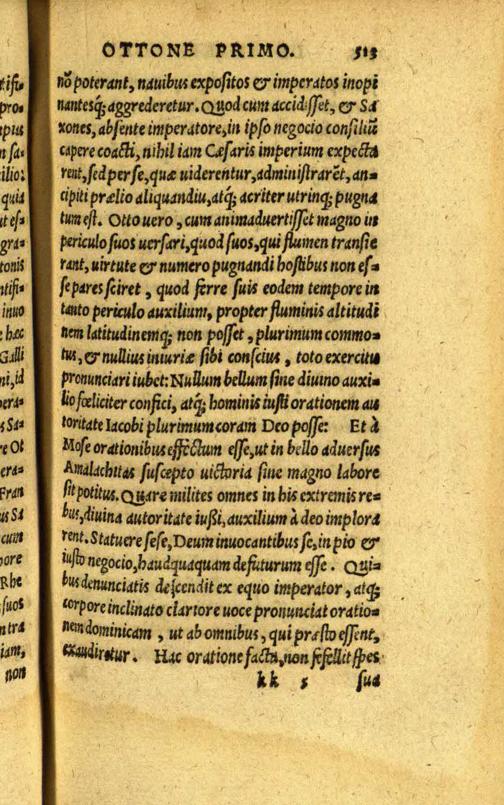 OTTONE PRIMO. 513
nõ poterant, nauibus expositos & imperatos inopi
nantesq; aggrederetur. Quod cum accidisset, & Sa
xones, absente imperatore, in ipso negocio consiliũ
capere coacti, nihil iam Cæsaris imperium expecta
rent, sed per se, quæ uiderentur, administrarẽt, an=
cipiti prælio aliquandiu, atq; acriter utrinq; pugna
tum est. Otto uero, cum animaduertisset magno in
periculo suos uersari, quod suos, qui flumen transie
rant, uirtute & numero pugnandi hostibus non es=
se pares sciret, quod ferre suis eodem tempore in
tanto periculo auxilium, propter fluminis altitudi
nem latitudinemq; non posset, plurimum commo=
tus, & nullius iniuriæ sibi conscius, toto exercitu
pronunciari iubet: Nullum bellum sine diuino auxi=
lio fœliciter confici, atq; hominis iusti orationem au
toritate Iacobi plurimum coram Deo posse: Et à
Mose orationibus effectum esse, ut in bello aduersus
Amalachitas suscepto uictoria sine magno labore
sit potitus. Quare milites omnes in his extremis re=
bus, diuina autoritate iußi, auxilium à deo implora
rent. Statuere sese, Deum inuocantibus se, in pio &
iusto negocio, haudquaquam defuturum esse. Qui=
bus denunciatis descendit ex equo imperator, atq;
corpore inclinato clariore uoce pronunciat oratio=
nem dominicam, ut ab omnibus, qui præsto essent,
exaudiretur. Hac oratione facta, non fefellit spes
kk 5 sua
tifi=
pro=
mpus
n sa=
ilio:
quia
ut es=
gra=
tonis
ntifi=
inuo
e hæc
Galli
ni, id
pera=
us Sa=
re Ot
era=
Fran
us Sa
cum
pore
Rhe
suos
ntra
iam,
non